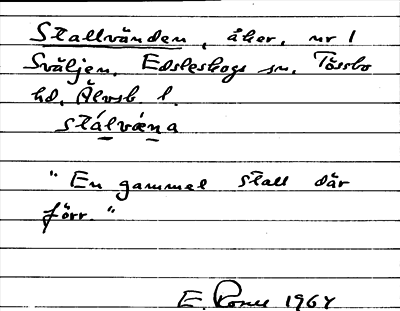 Stallvänden, åker, nr 1
Sväljen, Edsleskogs sn, Tössbo
hd, Älvsb. l.
stálvæna
"En gammel stall där
förr."
E. 1964